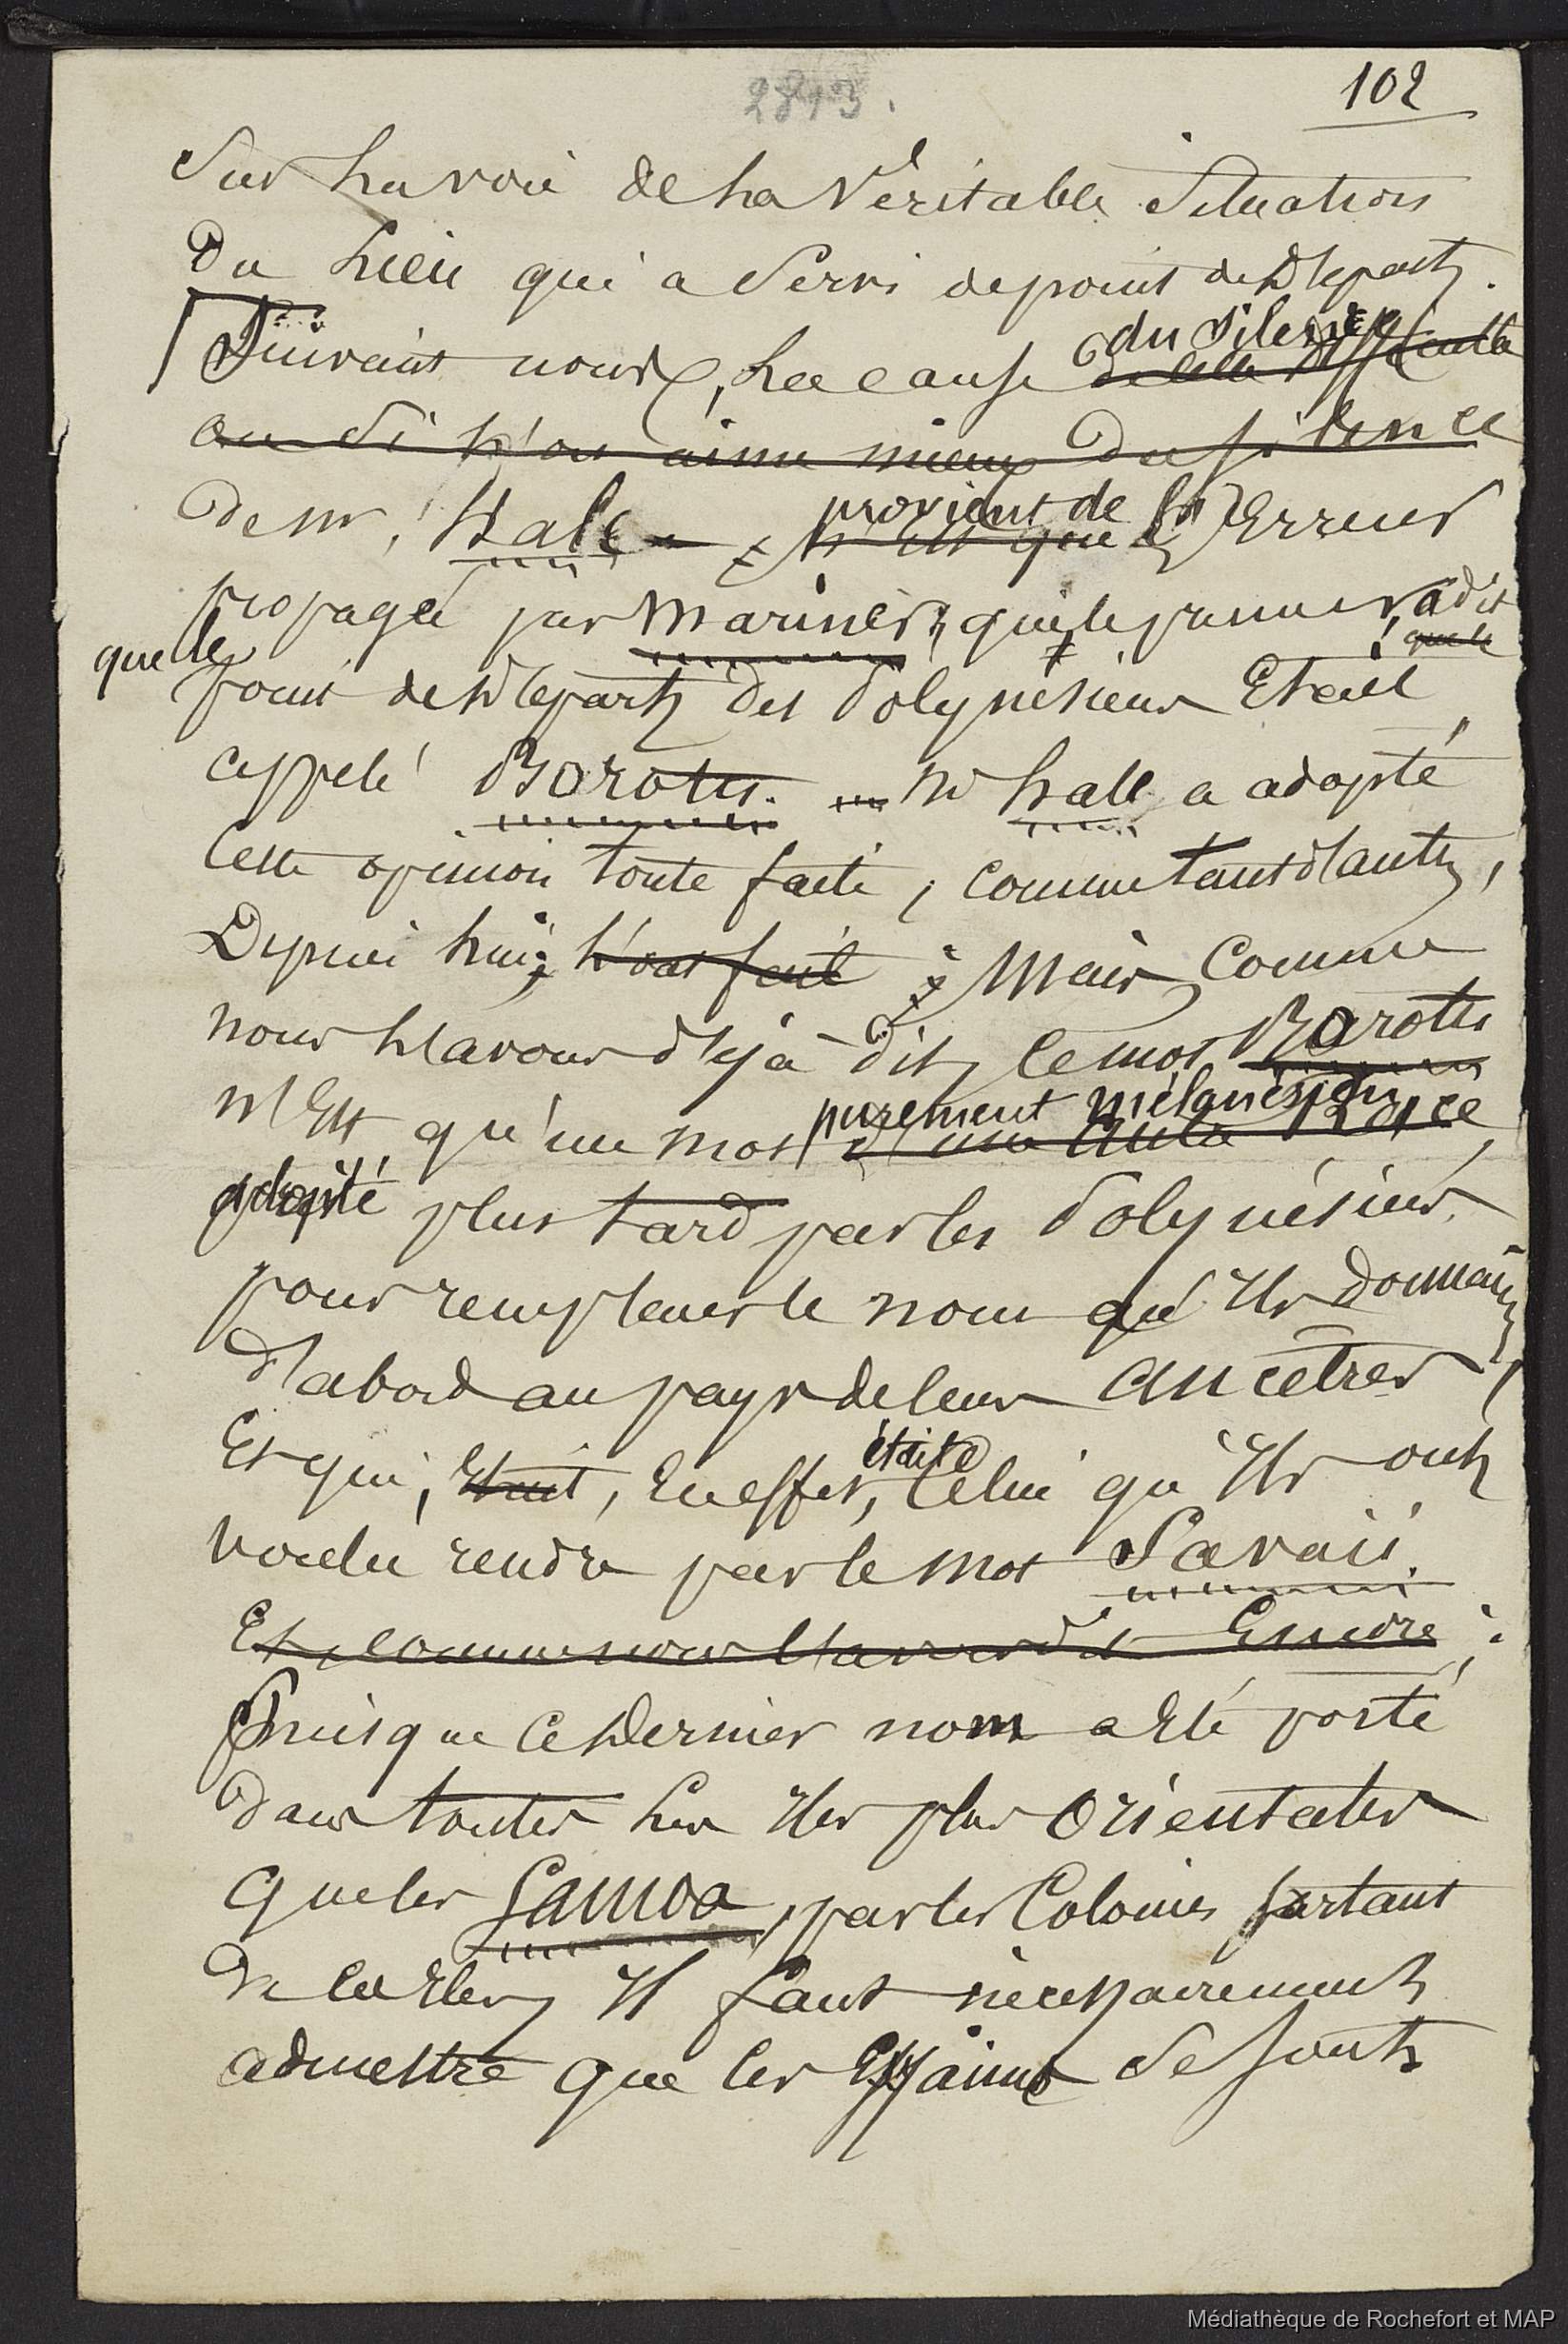 2813.
102
Sur la voie de la Véritable Situation
Du Lieu qui a Servi de point de Départ.
Suivant nous, La cause du silence de cette difficulté
ou Si l'on aime mieux Du silence
de Mr. Hale provient de l'Erreur
propagée par Mariner, qui le premier, a dit que le
que le point de Départ des Polynésiens Etait
appelé Borotu. Mr Hale a adopté
Cette opinion toute faite, comme tant d'autres,
Depuis lui, l'ont fait ; Mais, Comme
nous l'avons déjà dit, le mot Barotu
n'Est qu'un mot purement mélanésien d'une autre Race
adopté plus tard par les Polynésiens
pour remplacer le nom qu'Ils donnaient
d'abord au pays de leurs Ancêtres,
Et qui, Etait, En effet, était Celui qu'Ils ont
voulu rendre par le mot Savaii.
Et, comme nous l'avons dit Encore ;
Puisque ce Dernier nom a Eté porté
Dans toutes Les Iles plus Orientales
que les Samoa, par les Colonies partant
De ces Iles, Il faut nécessairement
admettre que les Essaims se sont
Médiathèque de Rochefort et MAP